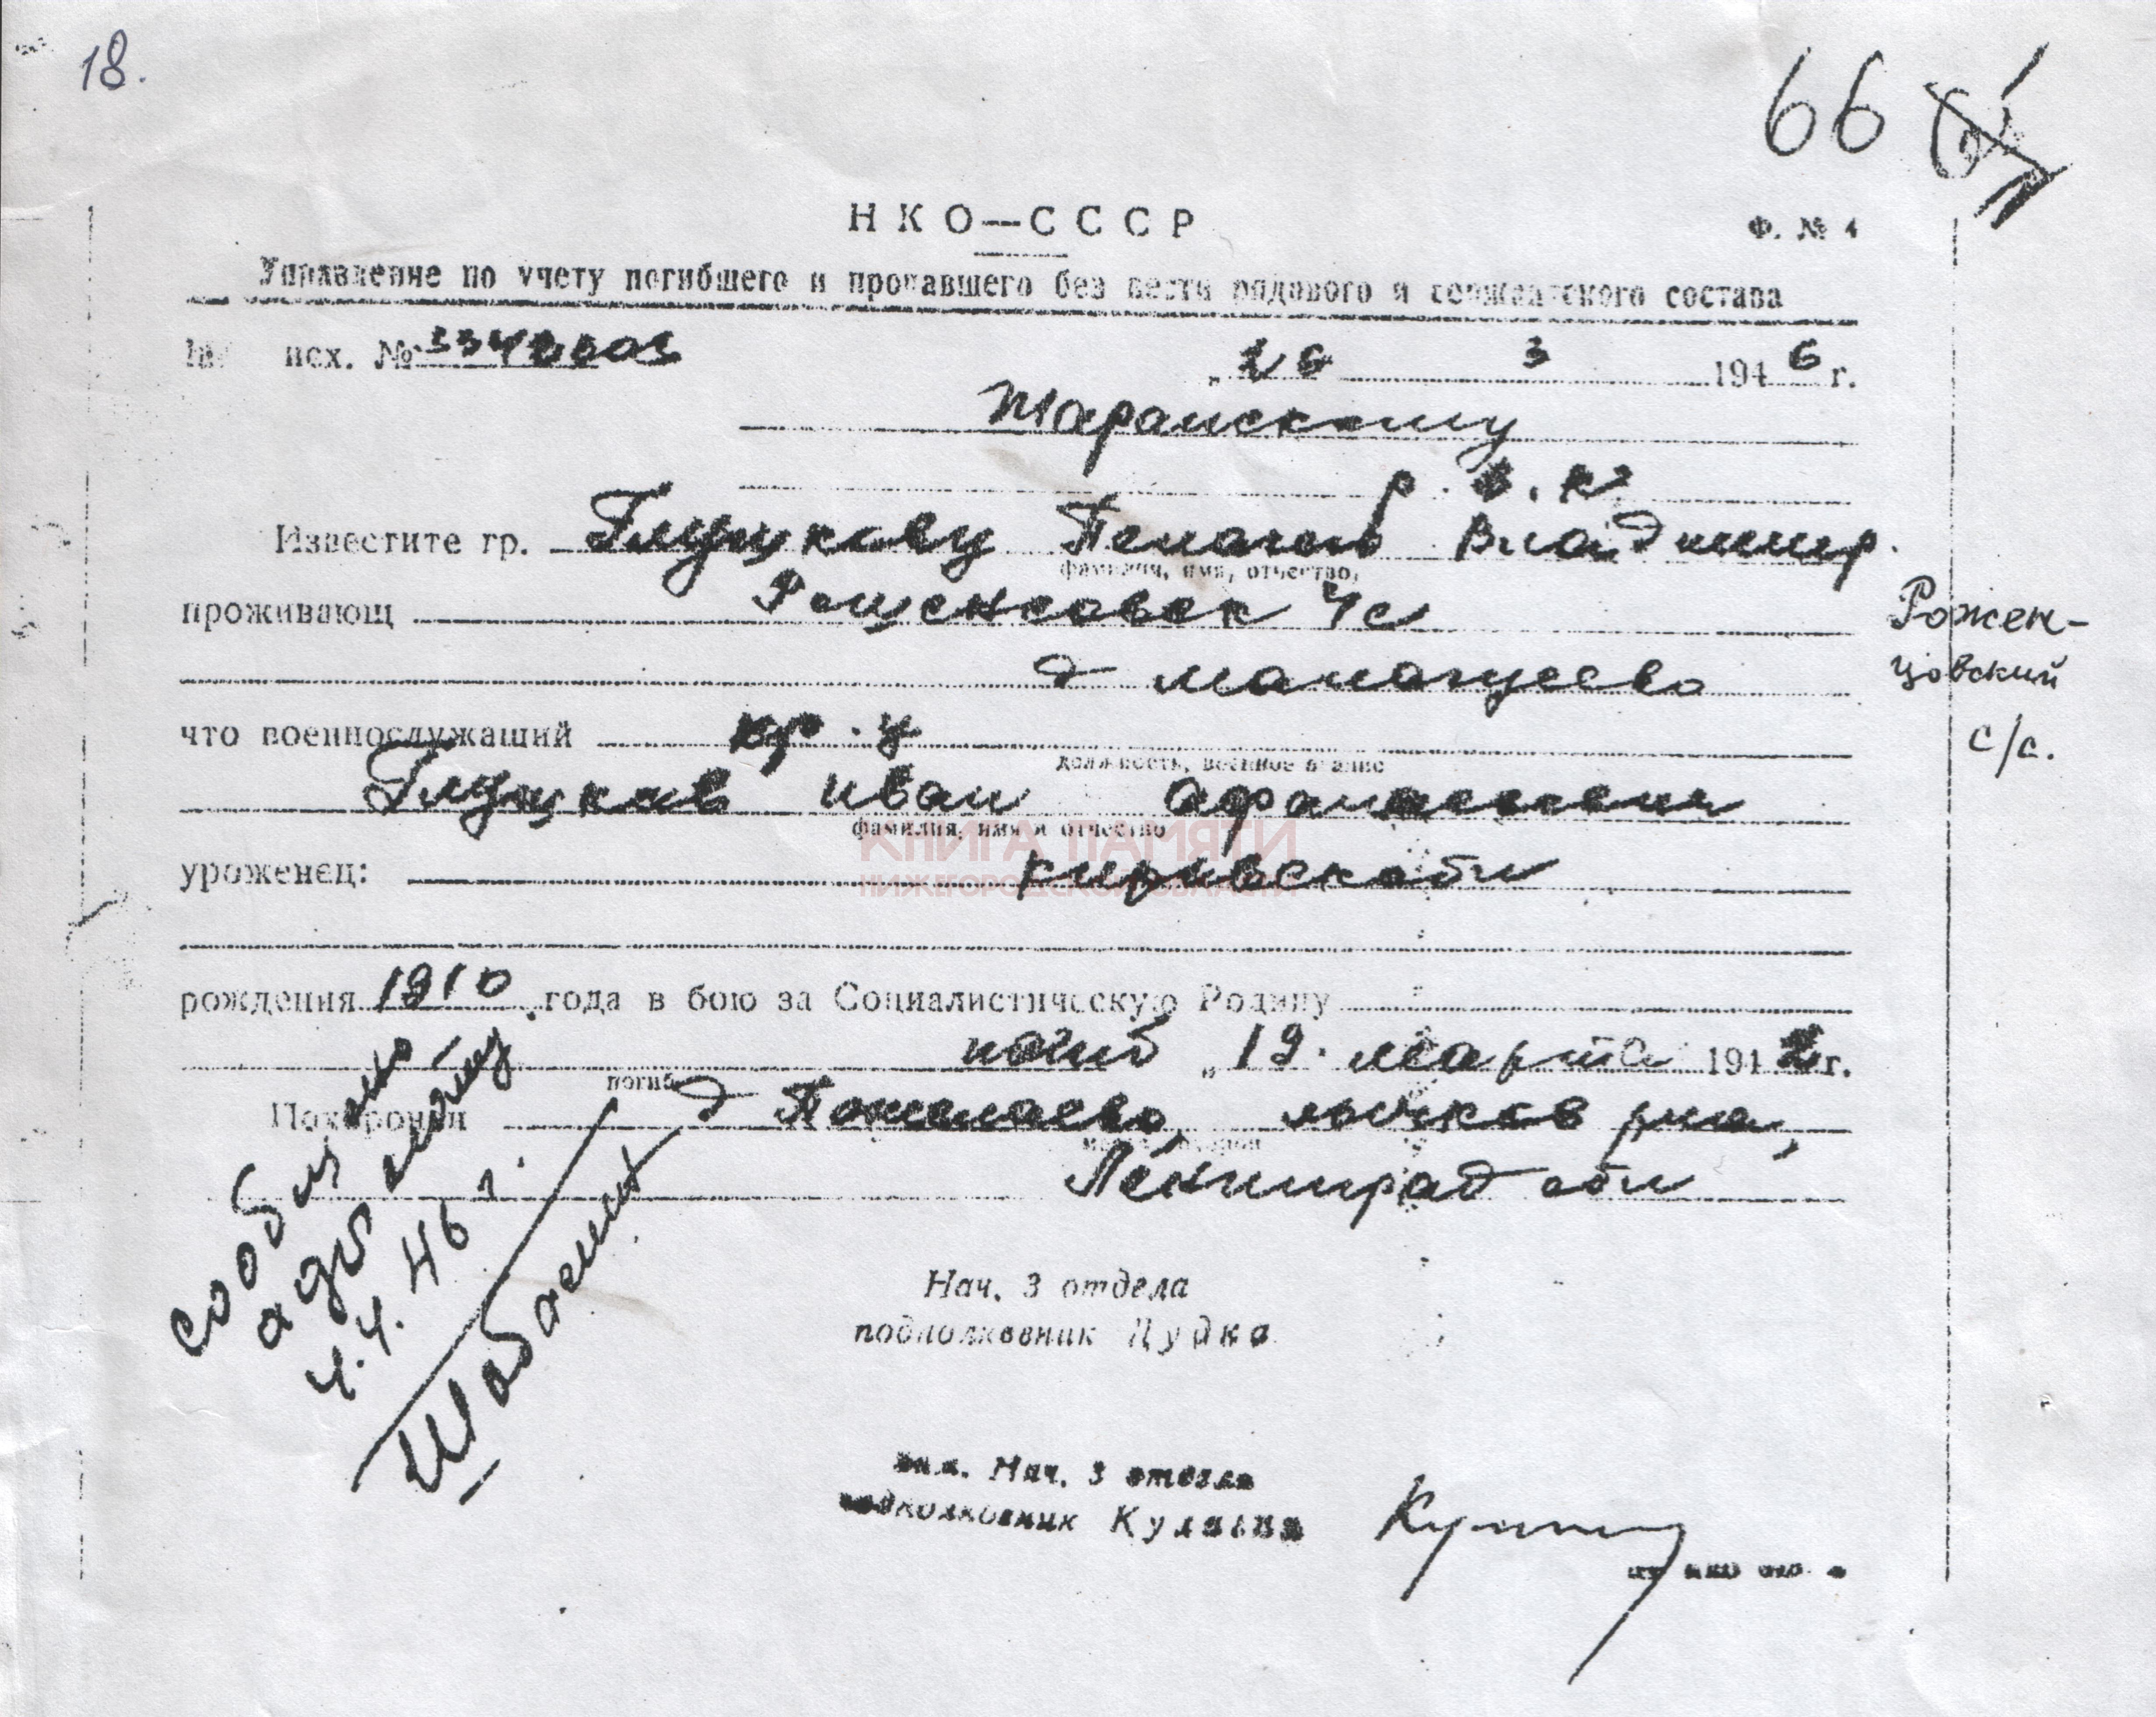 18.
66
НКО—СССР
Ф. № 4
Управление по учету погибшего и пропавшего без вести рядового и сержантского состава
исх. №
„26 3 1946 г.
Шарангскому
р.в.к
Известите гр. Глушкову Пелагею Владимир.
фамилия, имя, отчество,
проживающ с/с
Рожен-
цовский
с/с.
д
что военнослужащий кр-ц
должность, военное звание
Глушков Иван Афанасьевич
фамилия, имя и отчество
КНИГА ПАМЯТИ
уроженец: Кировск обл
НИЖЕГОРОДСКОЙ ОБЛАСТИ
рождения 1910 года в бою за Социалистическую Родину
погиб „19. марта 1942 г.
погиб
Похоронен д лычков р-на,
Ленинград обл
Сообщено
4.4.46 г.
Нач. 3 отдела
подполковник Дудка
Нач. 3 отдела
подполковник